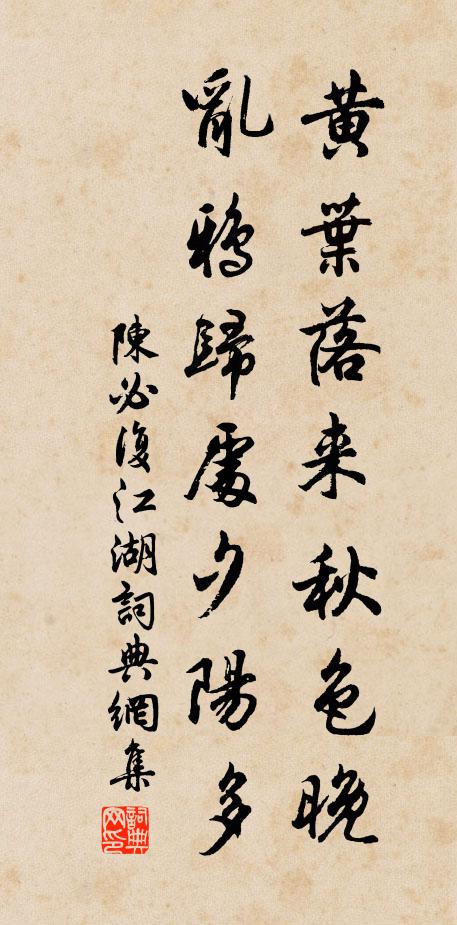 黄葉落来秋色晚
亂鴉歸處夕陽多
陳必復江湖詞典網集
詞典网印